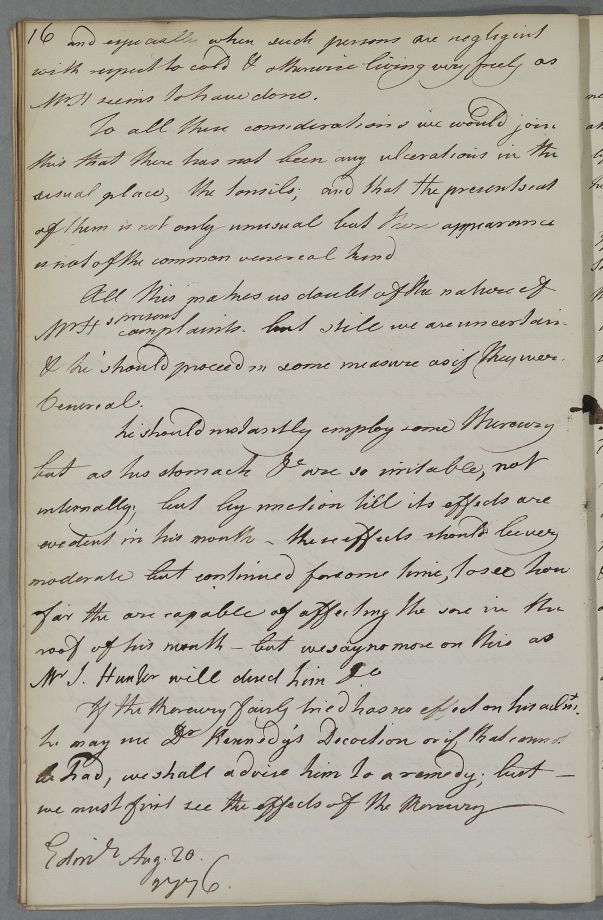 16 and especially when such persons are negligent
with respect to cold & otherwise living very freely as
Mr H seems to have done.
To all these considerations we would join
this that there has not been any ulcerations in the
usual place, the tonsils; and that the present seat
of them is not only unusual but there appearance
is not of the common venereal kind
All this makes us doubt of the nature of
Mr H's present complaints. but still we are uncertain
& he should proceed in some measure as if they were
Venereal.
he should instantly employ some Mercury
but as his stomach &c are so irritable, not
internally; but by unction till its effects are
evedent in his mouth – these effects should be very
moderate but continued for some time, to see how
far the are capable of affecting the sore in the
roof of his mouth – but we say no more on this as
Mr J. Hunter will direct him &c
If the Mercury fairly tried has no effect on his
he may use Dr Kennedy's Decoction or if that cannot
be had, we shall advise him to a remedy; but –
we must first see the effects of the Mercury
Edinr Aug. 20.
1776.